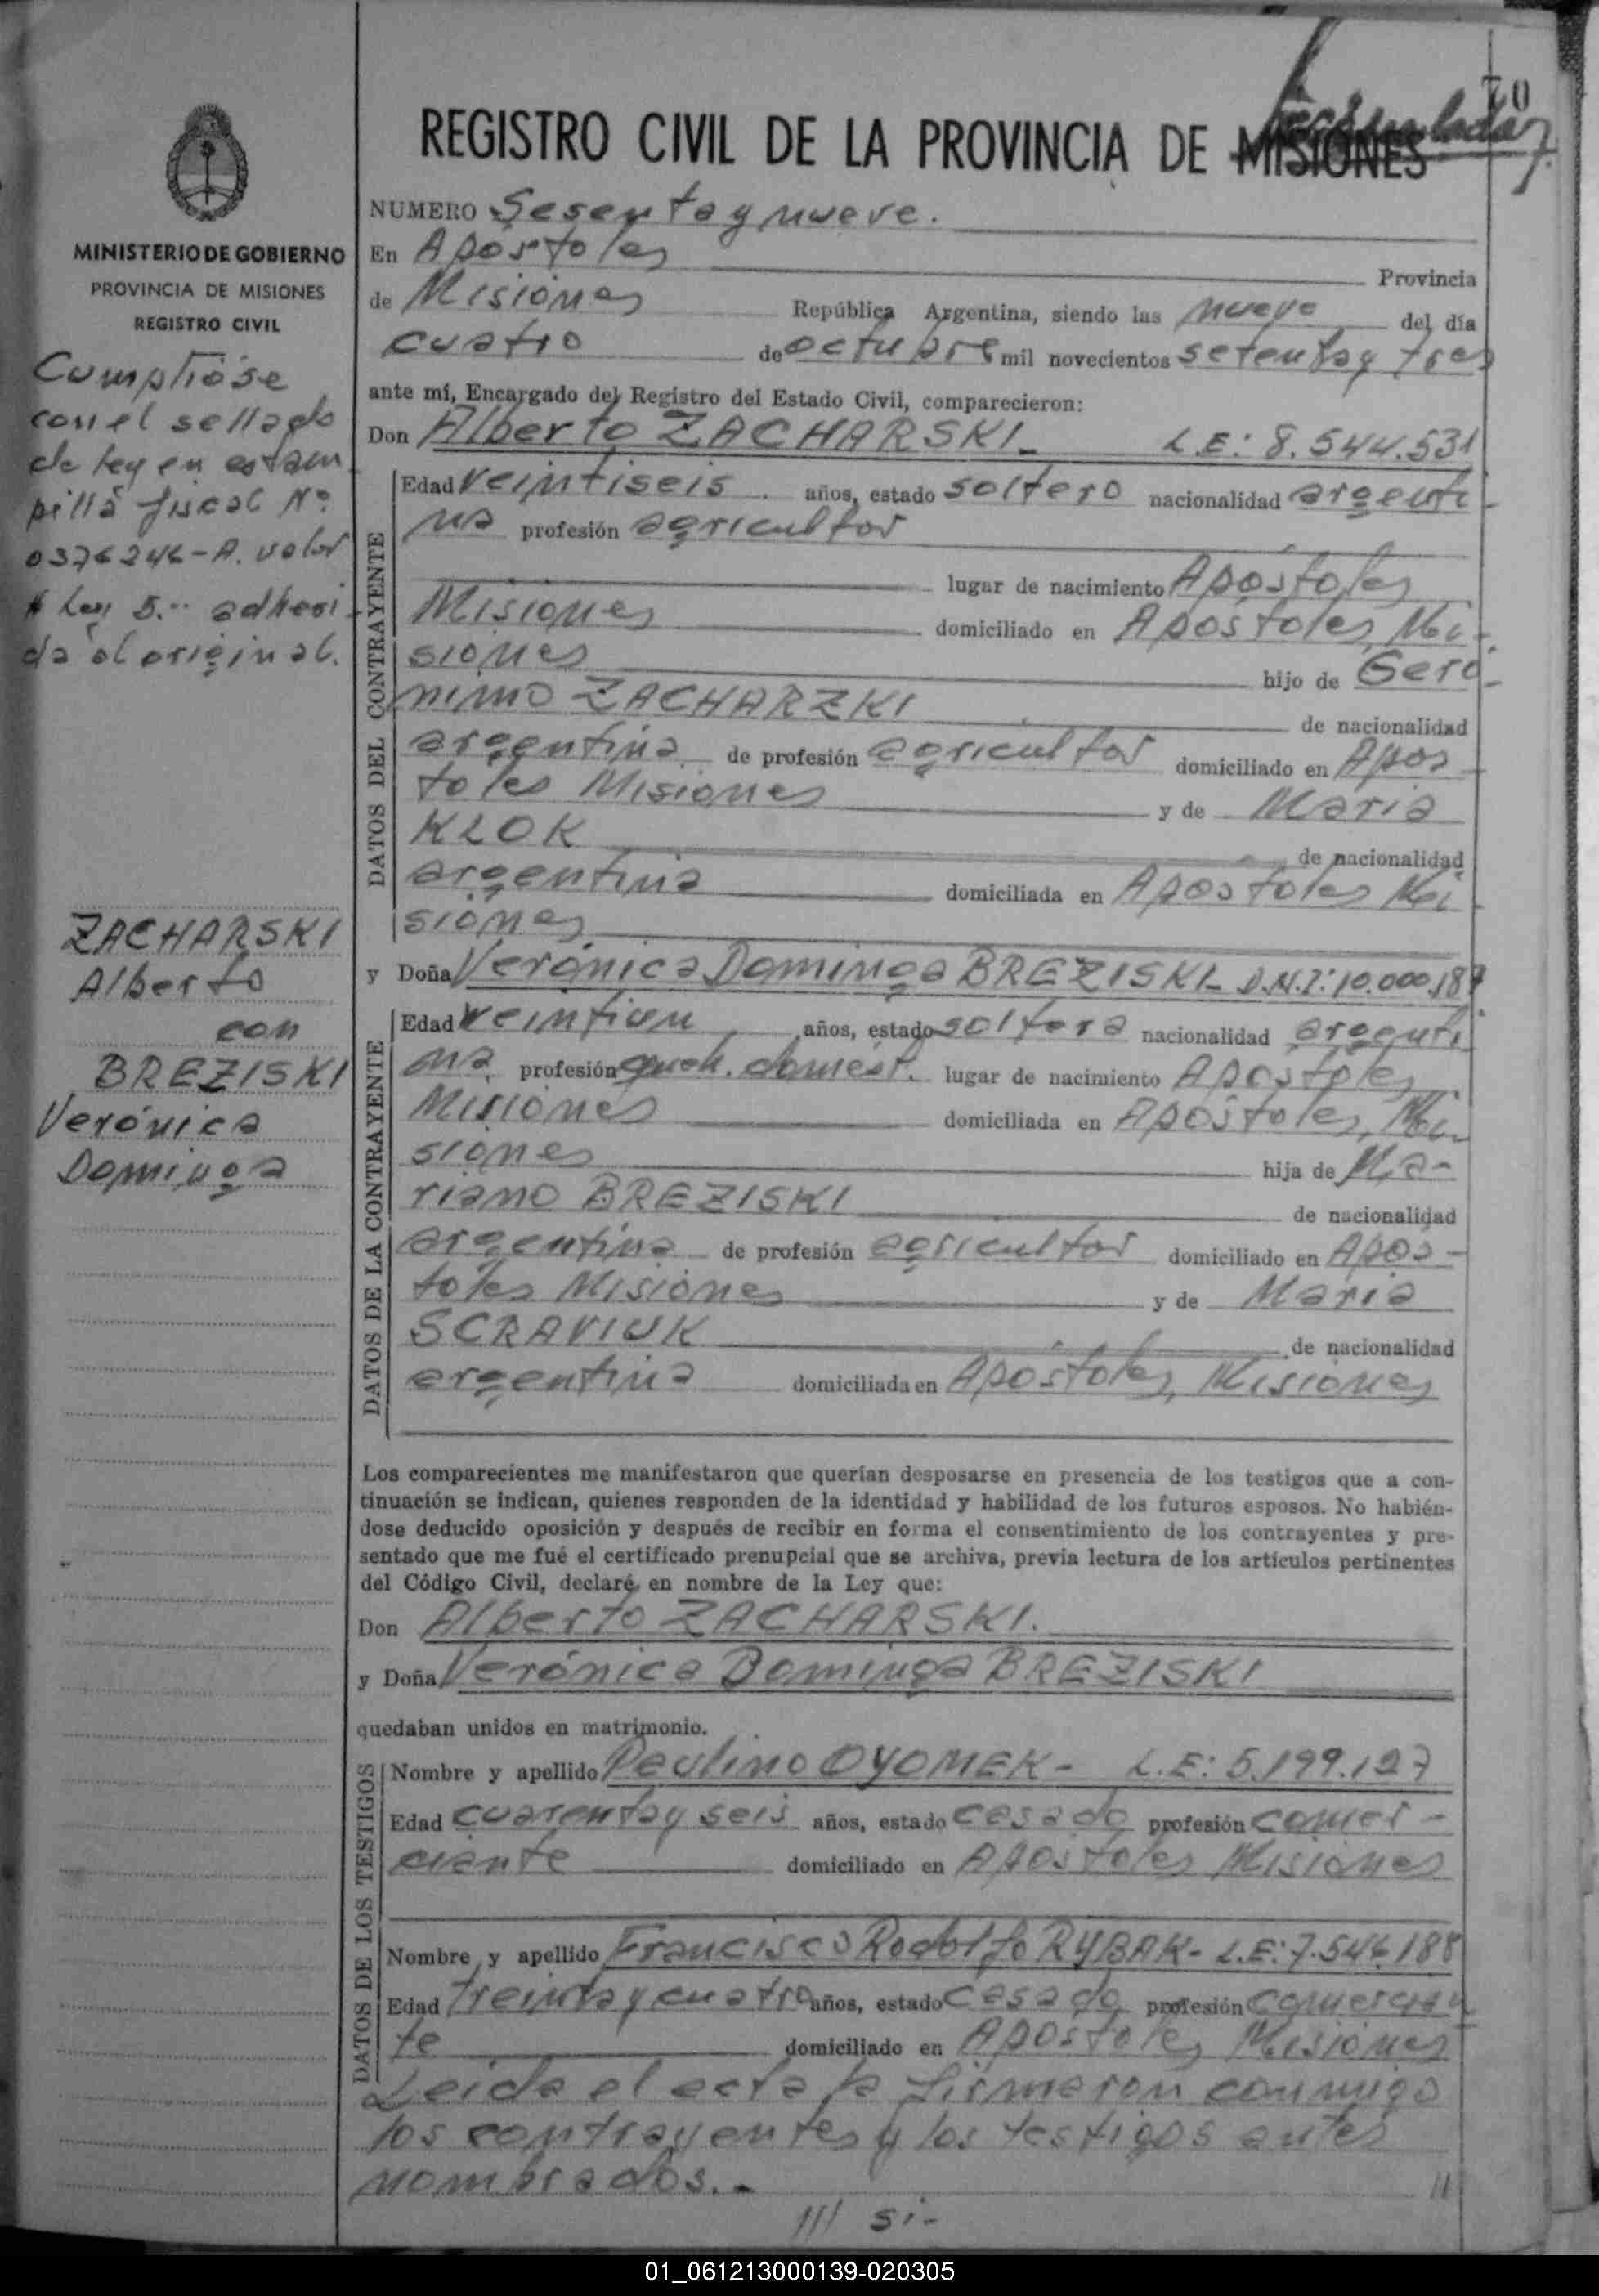 70
REGISTRO CIVIL DE LA PROVINCIA DE MISIONES
MINISTERIO DE GOBIERNO
PROVINCIA DE MISIONES
REGISTRO CIVIL
Cumplióse
con el sellado
de ley en estam
pilla fiscal Nº
0376246-A. valor
$ Ley 5.-- adheri
da al original.
ZACHARSKI
Alberto
con
BREZISKI
Verónica
Dominga
NUMERO Sesenta y nueve.
En Apóstoles Provincia
de Misiones República Argentina, siendo las nueve del día
cuatro de octubre mil novecientos setenta y tres
ante mí, Encargado del Registro del Estado Civil, comparecieron:
Don Alberto ZACHARSKI_ L.E: 8.544.531
DATOS DEL CONTRAYENTE
Edad veintiseis años, estado soltero nacionalidad argenti-
na profesión agricultor
lugar de nacimiento Apóstoles
Misiones domiciliado en Apóstoles, Mi-
siones hijo de Geró-
nimo ZACHARZKI de nacionalidad
argentina de profesión agricultor domiciliado en Apos-
toles Misiones y de María
KLOK de nacionalidad
argentina domiciliada en Apóstoles Mi-
siones
y Doña Verónica Dominga BREZISKI_ D.N.I: 10.000.187
DATOS DE LA CONTRAYENTE
Edad veintiun años, estado soltera nacionalidad argenti
na profesión queh. domést. lugar de nacimiento Apóstoles
Misiones domiciliada en Apóstoles, Mi-
siones hija de Ma-
riano BREZISKI de nacionalidad
argentina de profesión agricultor domiciliado en Apos-
toles Misiones y de María
SCRAVIUK de nacionalidad
argentina domiciliada en Apóstoles, Misiones
Los comparecientes me manifestaron que querían desposarse en presencia de los testigos que a con-
tinuación se indican, quienes responden de la identidad y habilidad de los futuros esposos. No habién-
dose deducido oposición y después de recibir en forma el consentimiento de los contrayentes y pre-
sentado que me fué el certificado prenupcial que se archiva, previa lectura de los artículos pertinentes
del Código Civil, declaré en nombre de la Ley que:
Don Alberto ZACHARSKI.
y Doña Verónica Dominga BREZISKI
quedaban unidos en matrimonio.
DATOS DE LOS TESTIGOS
Nombre y apellido Paulino OYOMEK- L.E: 5.199.127
Edad cuarenta y seis años, estado casado profesión comer-
ciante domiciliado en Apóstoles Misiones
Nombre y apellido Francisco Rodolfo RYBAK- L.E: 7.546.188
Edad treinta y cuatro años, estado casado profesión comercian
te domiciliado en Apóstoles Misiones
Leida el acta la firmaron conmigo
los contrayentes y los testigos antes
nombrados.-
/// si-
01_061213000139-020305